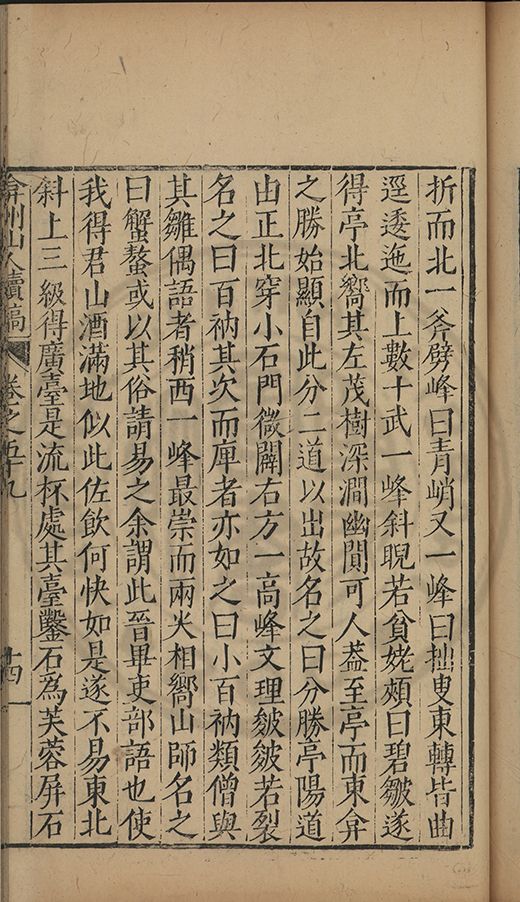 折而北一斧劈峰曰青峭又一峰曰拙叟東轉皆曲
逕逶迤而上數十武一峰斜睨若貧姥頰曰碧皺遂
得亭北嚮其左茂樹深澗幽閒可人葢至亭而東弇
之勝始顯自此分二道以出故名之曰分勝亭陽道
由正北穿小石門微闢右方一高峰文理皴皴若裂
名之曰百衲其次而庳者亦如之曰小百衲類僧與
其雛偶語者稍西一峰最崇而兩火相嚮山師名之
曰蟹螯或以其俗請易之余謂此晉畢吏部語也使
我得君山酒滿地似此佐飲何快如是遂不易東北
斜上三級得廣臺是流杯處其臺鑿石為芙蓉屏石
弇州山人續稿 卷之五十九 十四